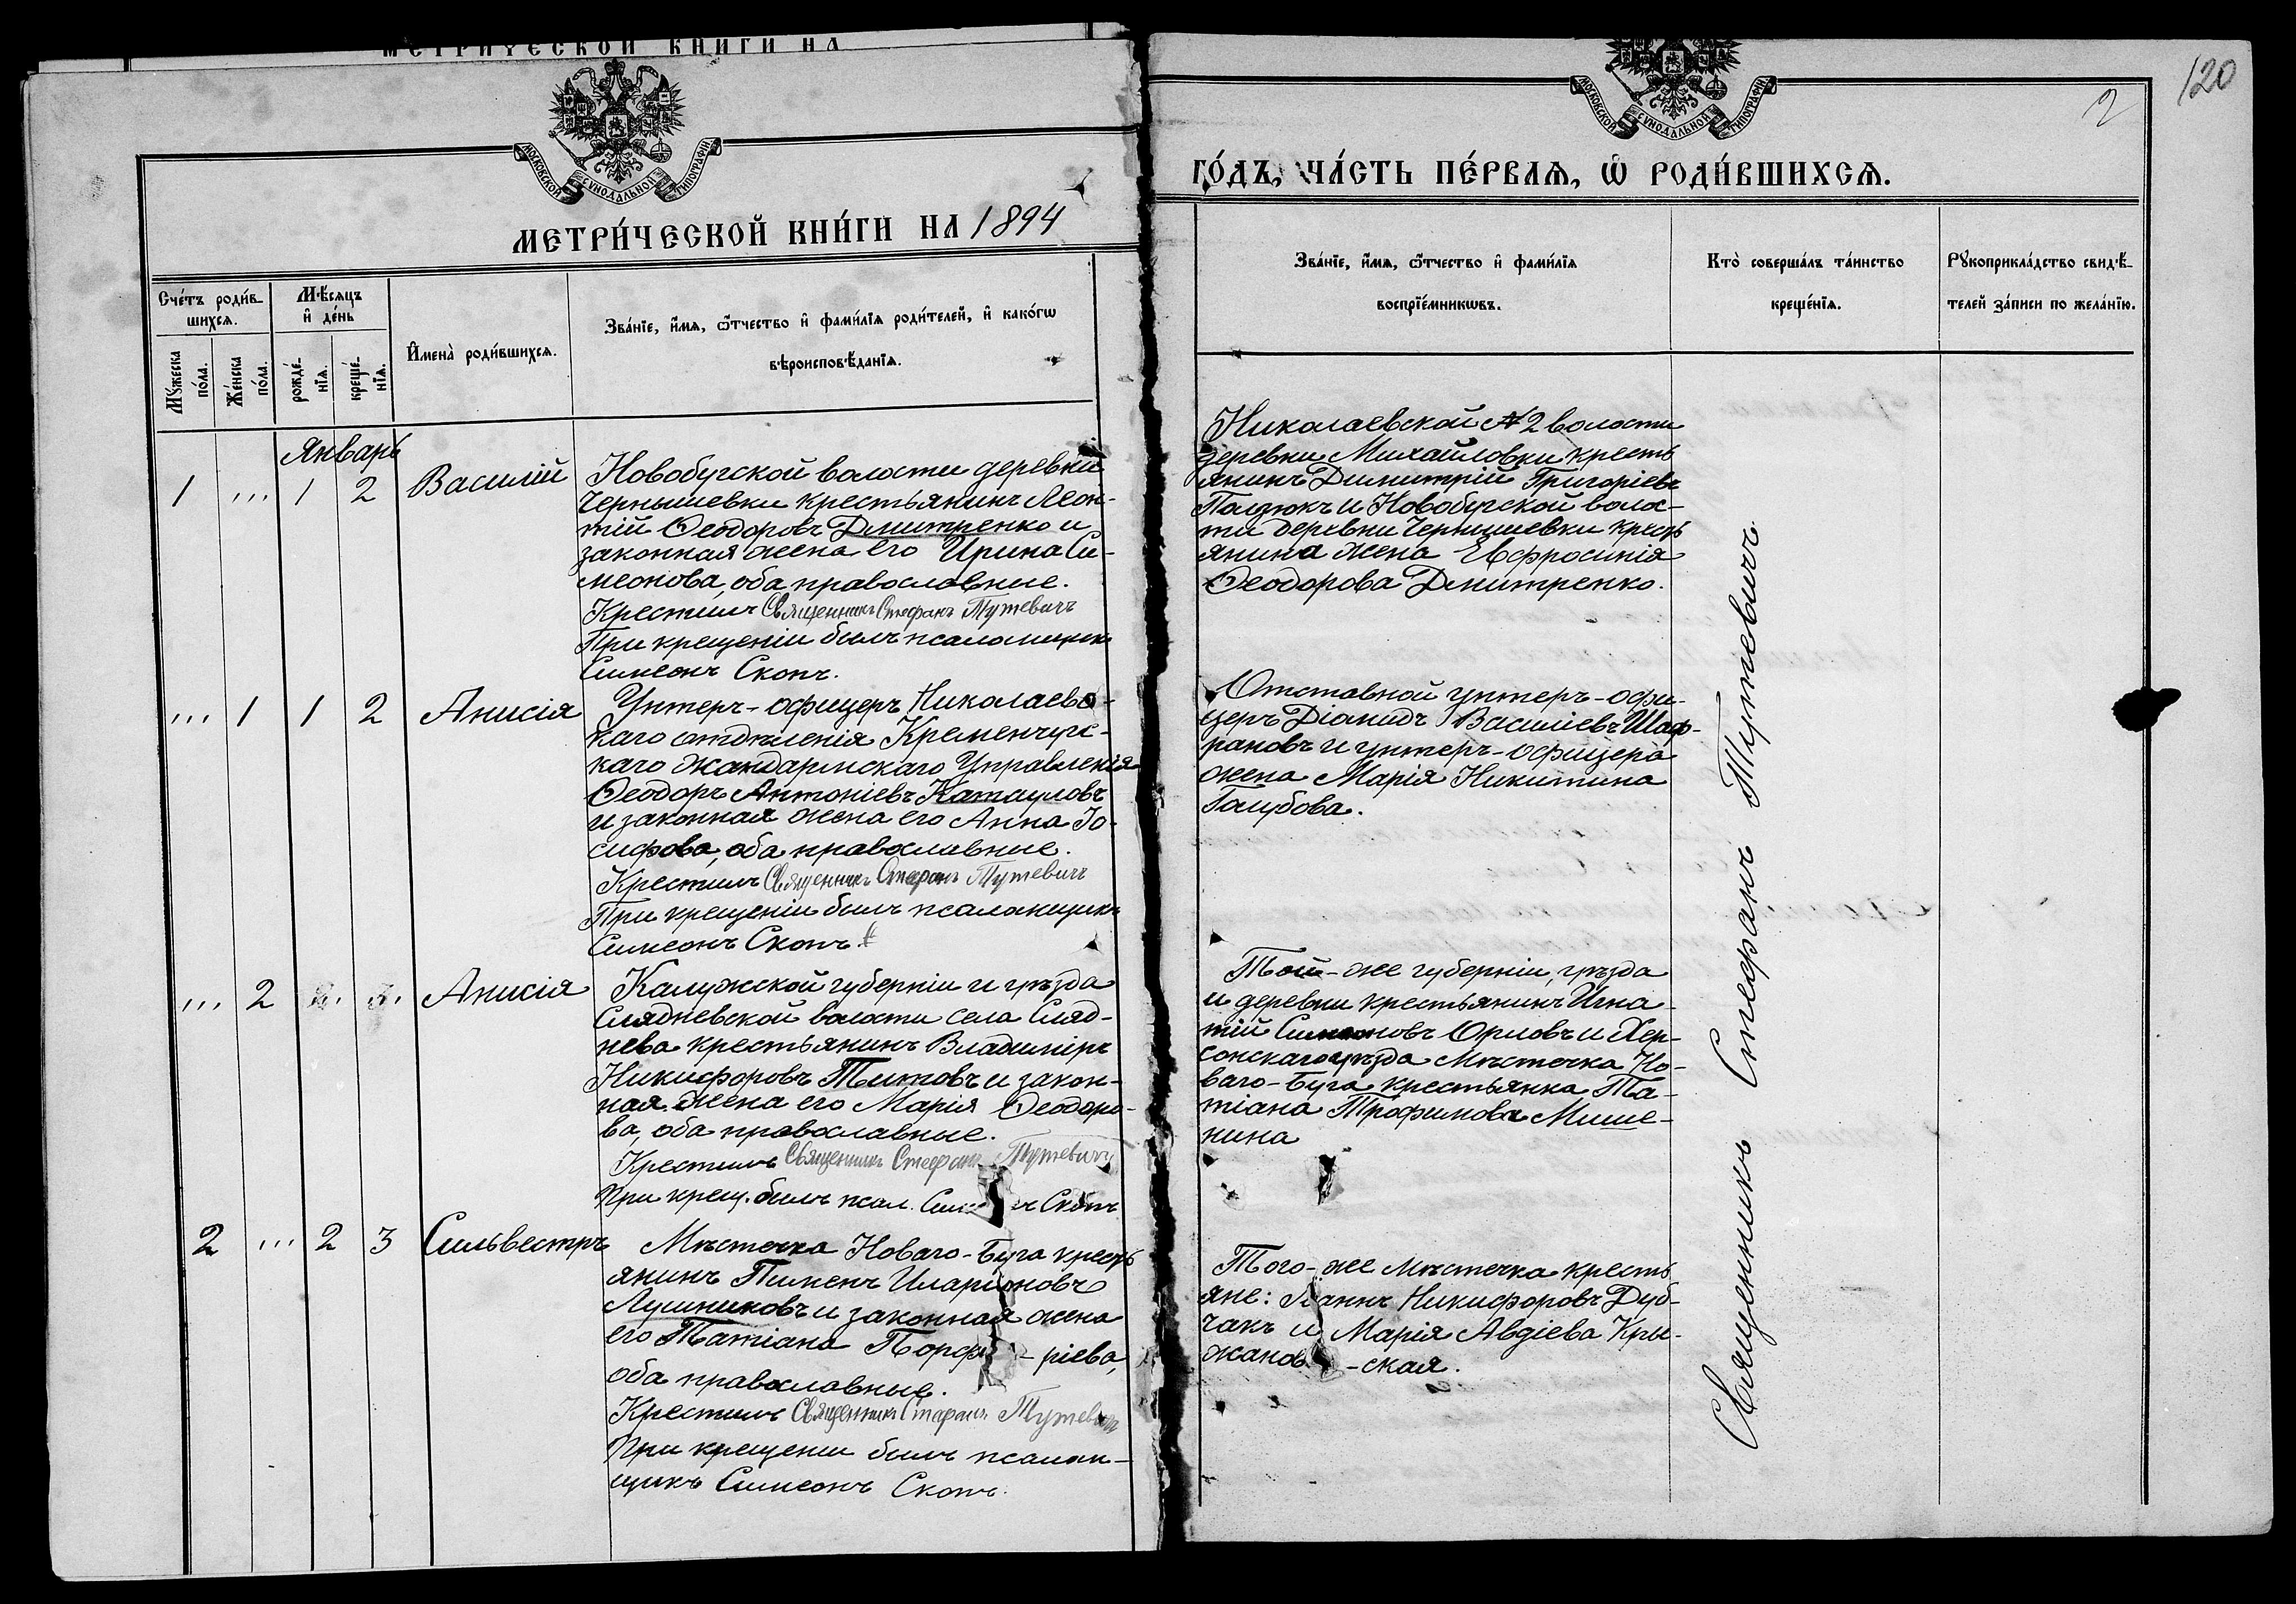 МЕТРИЧЕСКОЙ КНИГИ НА
МОСКОВСКОЙ СУНОДАЛЬНОЙ ТИПОГРАФІИ
МЕТРИ́ЧЕСКОЙ КНИ́ГИ НА 1894
Сче́тъ роди́в-
шихсѧ.
Мѣ́сѧцъ
и҆ де́нь
Мꙋ́жеска
по́ла.
Же́нска
по́ла.
рожде́-
нїѧ.
креще́-
нїѧ.
И҆мена̀ роди́вшихсѧ.
Зва́нїе, и҆́мѧ, ѻ҆́тчество и҆ фами́лїѧ роди́телей, и҆ како́гѡ
вѣроисповѣ́данїѧ.
Январь
1 ... 1 2 Василій
Новобугской волости деревни
Чернышевки крестьянинъ Леон-
тій Ѳеодоровъ Дмитренко и
законная жена его Ирина Си-
меонова, оба православные.
Крестилъ Священникъ Стефанъ Тутевичъ
При крещеніи былъ псаломщикъ
Симеонъ Скопъ.
... 1 1 2 Анисія
Унтеръ-офицеръ Николаевс-
каго отдѣленія Кременчугс-
каго жандармскаго Управленія
Ѳеодоръ Антоніевъ Катауловъ
и законная жена его Анна Іо-
сифова, оба православные.
Крестилъ Священникъ Стефанъ Тутевичъ
При крещеніи былъ псаломщикъ
Симеонъ Скопъ.
... 2 Анисія
Калужской губерніи и уѣзда
Слядневской волости села Сляд-
нева крестьянинъ Владиміръ
Никифоровъ Титовъ и закон-
ная жена его Марія Ѳеодоро-
ва, оба православные.
Крестилъ Священникъ Стефанъ Тутевичъ
При крещ. былъ псал. Скопъ
2 ... 2 3 Сильвестръ
Мѣстечка Новаго-Буга кресть
янинъ Пименъ Иларіоновъ
Лушниковъ и законная жена
его Татіана Порфи-ріева,
оба православные.
Крестилъ Священникъ Стефанъ Тутевичъ
При крещеніи былъ псалом-
щикъ Симеонъ Скопъ.
120
2
МОСКОВСКОЙ СУНОДАЛЬНОЙ ТИПОГРАФІИ
ГО́ДЪ, ЧА́СТЬ ПЕ́РВАѦ, Ѿ РОДИ́ВШИХСѦ.
Зва́нїе, и҆́мѧ, ѻ҆́тчество и҆ фами́лїѧ
воспрїе́мникѡвъ.
Кто̀ соверша́лъ та́инство
креще́нїѧ.
Рꙋкоприкла́дство свидѣ́-
телей за́писи по жела́нїю.
Николаевской №2 волости
деревни Михайловки кресть
янинъ Димитрій Григоріевъ
Палзюкъ и Новобугской волос-
ти деревни Чернышевки кресть
янина жена Евфросинія
Ѳеодорова Дмитренко.
Отставной унтеръ-офи-
церъ Діомидъ Василіевъ Шаф-
рановъ и унтеръ-офицера
жена Марія Никитина
Голубова.
Той-же губерніи, уѣзда
и деревни крестьянинъ Игна-
тій Симеоновъ Орловъ и Хер-
сонскаго уѣзда Мѣстечка Но-
ваго-Буга крестьянка Та-
тіана Трофимова Мише-
нина
Того-же мѣстечка кресть
яне: Іоаннъ Никифоровъ Дуб-
чакъ и Марія Авдіева Кры-
жанов-ская.
Священникъ Стефанъ Тутевичъ